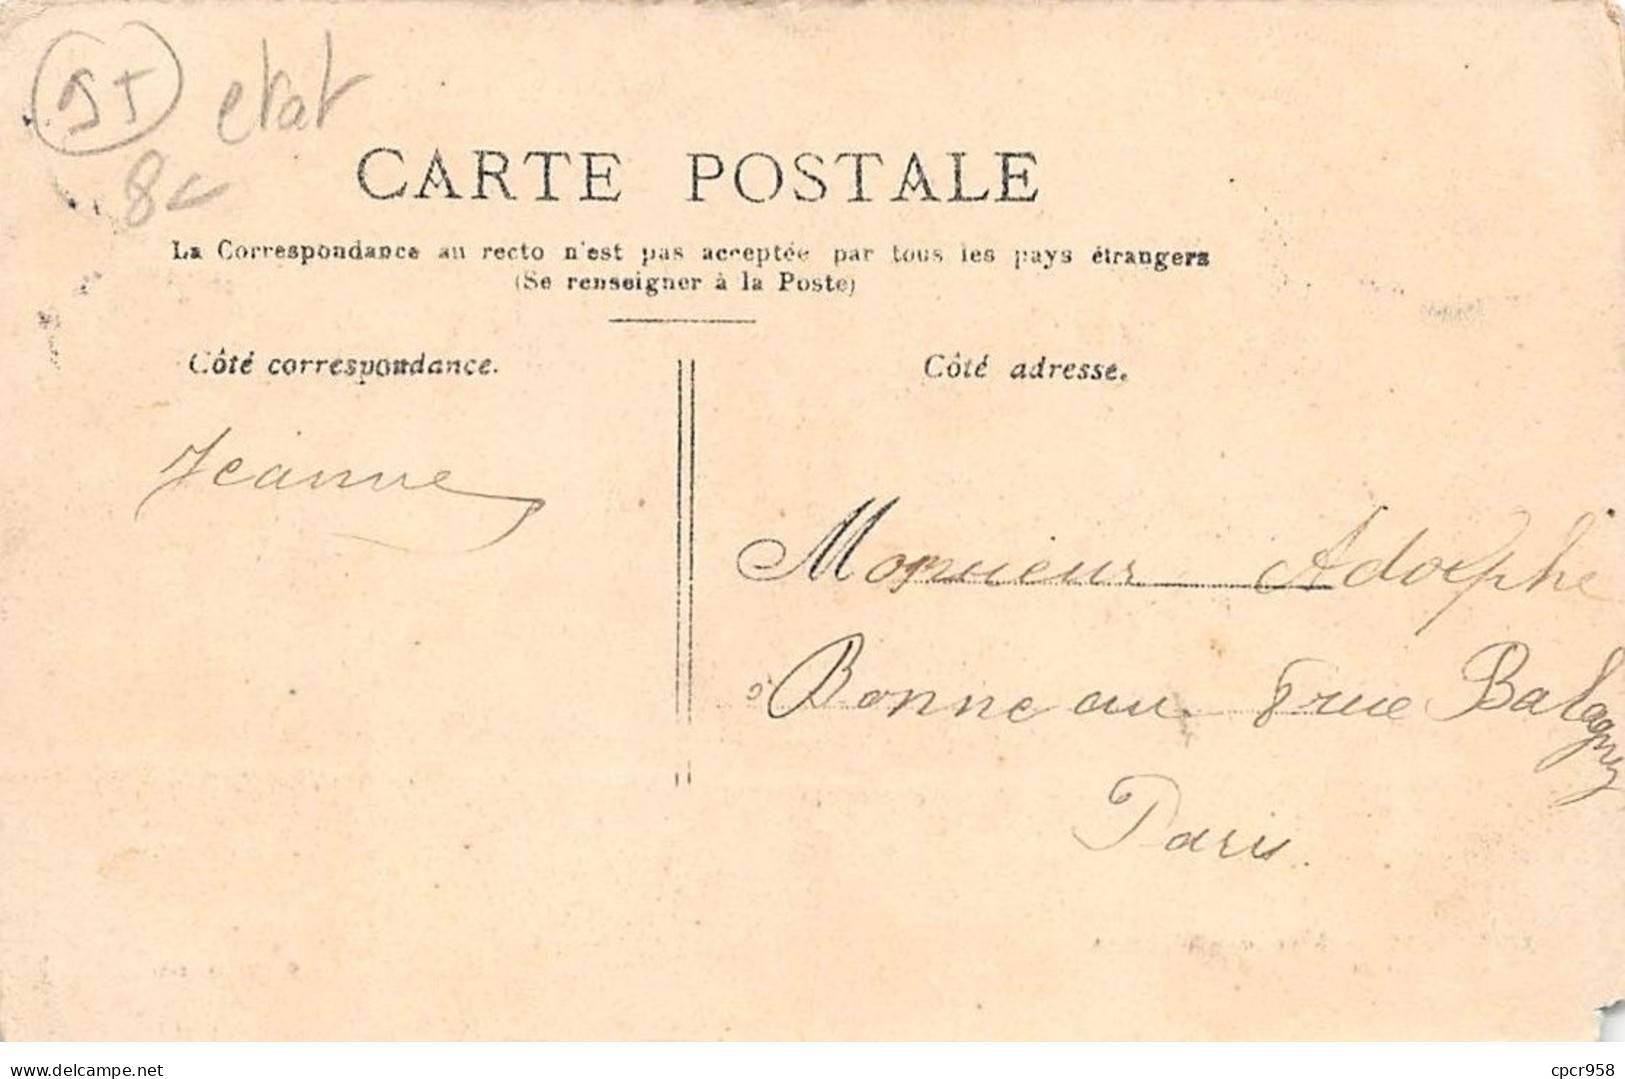 95 etat
8€
CARTE POSTALE
La Correspondance au recto n'est pas acceptée par tous les pays étrangers
(Se renseigner à la Poste)
Côté correspondance.
Côté adresse.
Jeanne
Monsieur Adolphe
Bonneau 8 rue Balagny
Paris.
delcampe.net
cpcr958